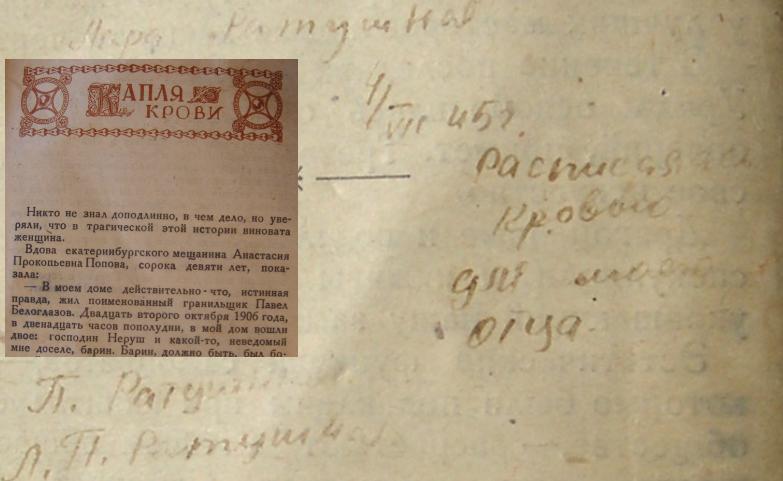 Лира Ратушная
4/VII 45г.
Расписалась
кровью
для моего
отца
П. Ратушная
Л. П. Ратушная
КАПЛЯ
КРОВИ
Никто не знал доподлинно, в чем дело, но уве-
ряли, что в трагической этой истории виновата
женщина.
Вдова екатеринбургского мещанина Анастасия
Прокопьевна Попова, сорока девяти лет, пока-
зала:
— В моем доме действительно-что, истинная
правда, жил поименованный гранильщик Павел
Белоглазов. Двадцать второго октября 1906 года,
в двенадцать часов пополудни, в мой дом вошли
двое: господин Неруш и какой-то, неведомый
мне доселе, барин. Барин, должно быть, был бо-